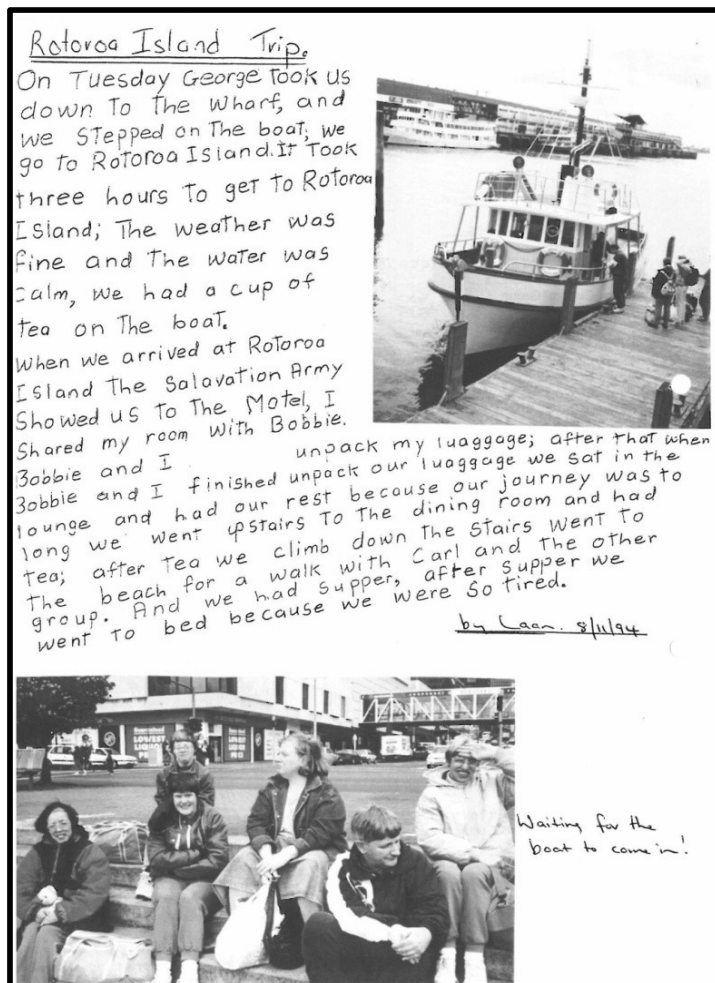 Rotoroa Island Trip.
On Tuesday George Took us
down To The Wharf, and
we Stepped on The boat, we
go to Rotoroa Island. It Took
three hours to get to Rotoroa
Island; The weather was
fine and The water was
calm, we had a cup of
tea on The boat.
When we arrived at Rotoroa
Island The Salavation Army
Showed us to The Motel, I
Shared my room with Bobbie.
Bobbie and I unpack my luaggage; after that when
Bobbie and I finished unpack our luaggage we sat in the
lounge and had our rest because our journey was to
long we went upstairs To the dining room and had
tea; after Tea we climb down The Stairs went to
The beach for a walk with Carl and The other
group. And we had Supper, after supper we
went to bed because we were so tired.
by Laan. 8/11/94
LOWEST
Waiting for the
boat to come in!